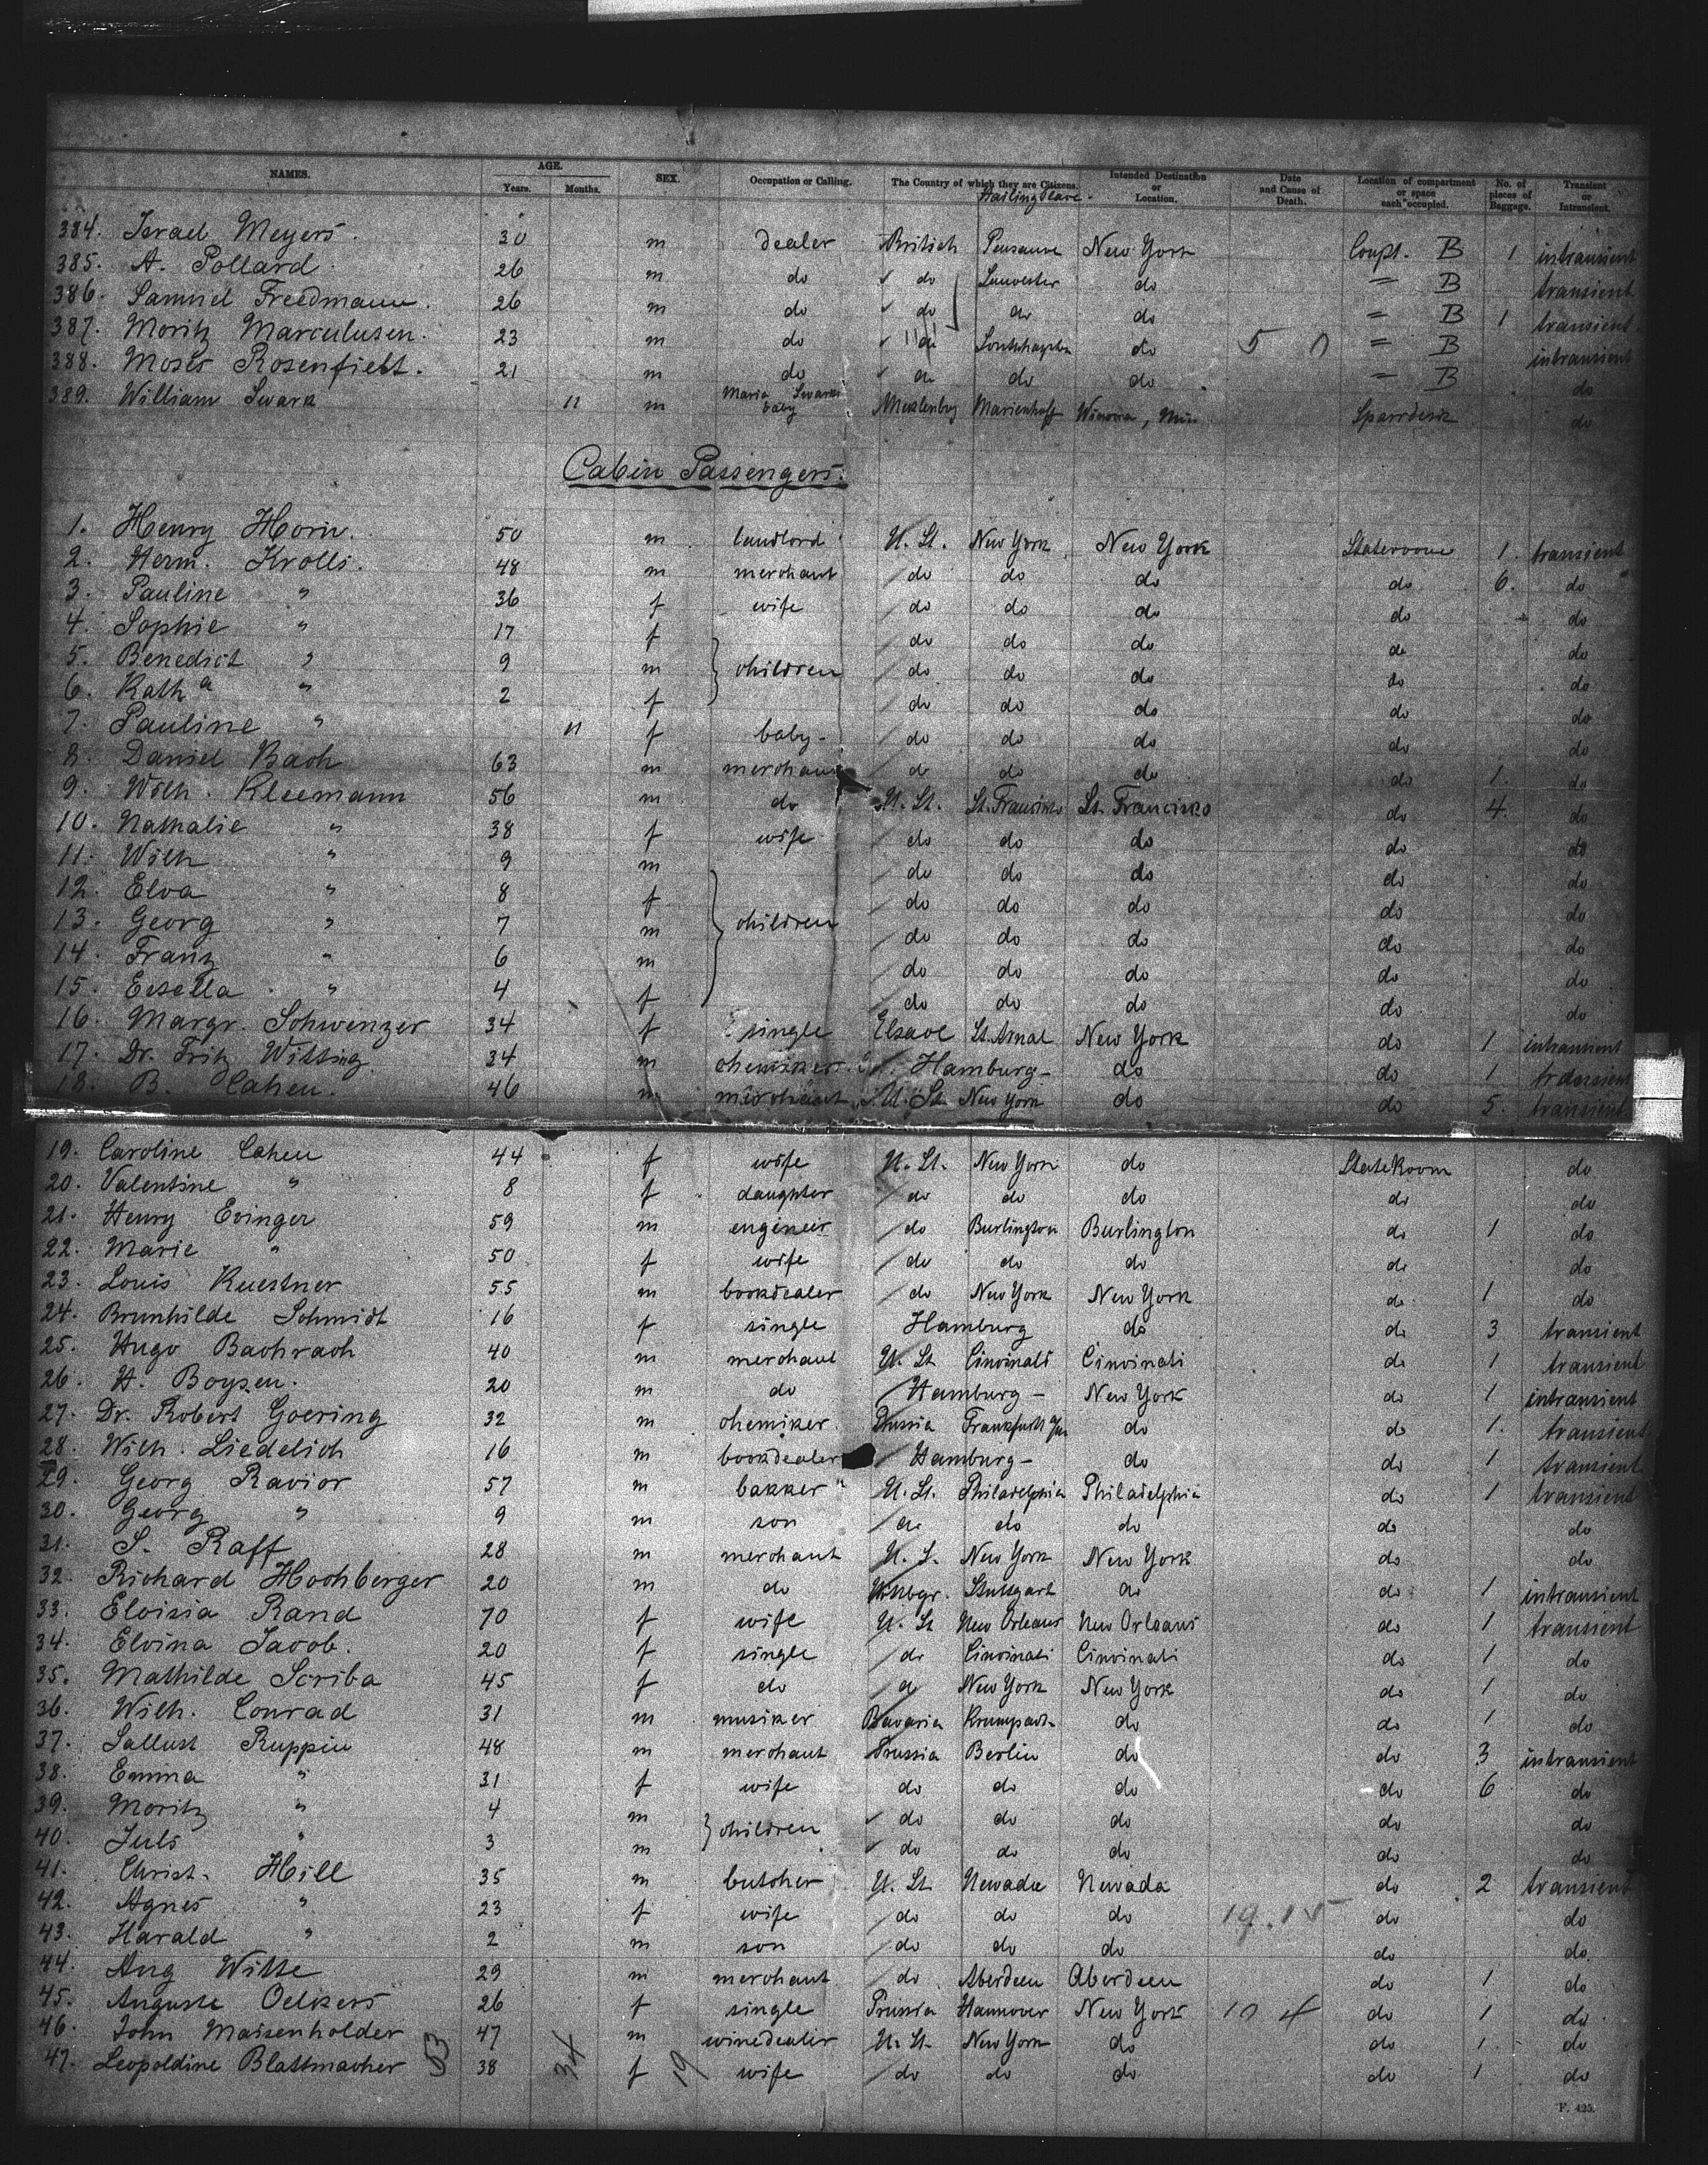 NAMES. AGE. Years. Months. SEX. Occupation or Calling. The Country of which they are Citizens. Hailing Place. Intended Destination or Location. Date and Cause of Death. Location of compartment or space each occupied. No. of pieces of Baggage. Transient or Intransient.
384. Israel Meyers. 30 m dealer British New York Coupt. B 1 intransient
385. A. Pollard. 26 m do do do " B transient
386. Samuel Freedmann. 26 m do do do do " B 1 transient
387. Moritz Marculusen. 23 m do do do 5 0 " B intransient
388. Moses Rosenfielt. 21 m do do do do " B do
389. William Swark 11 m Maria Swarks baby Meklenbg Marienhoff Winona, Min. do
Cabin Passengers.
1. Henry Horn. 50 m landlord U. St. New York New York Stateroom 1. transient
2. Herm. Krolls. 48 m merchant do do do do 6. do
3. Pauline " 36 f wife do do do do do
4. Sophie " 17 f do do do do do
5. Benedict " 9 m children do do do do do
6. Kath a " 2 f do do do do do
7. Pauline " 11 f baby do do do do do
8. Daniel Bach 63 m merchant do do do do 1. do
9. Wilh. Kleemann 56 m do U. St. St. Francisko St. Francisko do 4. do
10. Nathalie " 38 f wife do do do do do
11. Wilh " 9 m do do do do do
12. Elva " 8 f do do do do do
13. Georg " 7 m children do do do do do
14. Franz " 6 m do do do do do
15. Essella " 4 f do do do do do
16. Margr. Schwenzer 34 f single Elsace St. Amal New York do 1 intransient
17. Dr. Fritz Witting 34 m chemiker Hamburg - do do 1 transient
18. B. Cahen. 46 m merchant U. St. New York do do 5. transient
19. Caroline Cahen 44 f wife U. St. New York do State Room do
20. Valentine " 8 f daughter do do do do do
21. Henry Evinger 59 m engineer do Burlington Burlington do 1 do
22. Marie " 50 f wife do do do do do
23. Louis Kuestner 55 m bookdealer do New York New York do 1 do
24. Brunhilde Schmidt 16 f single Hamburg do do 3 transient
25. Hugo Bachrach 40 m merchant U. St. Cincinati Cincinati do 1 transient
26. H. Boysen. 20 m do Hamburg - New York do 1 intransient
27. Dr. Robert Goering 32 m chemiker Prussia Frankfurt a/m do do 1. transient
28. Wilh. Liedelich 16 m bookdealer Hamburg - do do 1 transient
29. Georg Ravior 57 m bakker U. St. Philadelphia Philadelphia do 1 transient
30. Georg " 9 m son do do do do do
31. S. Raff 28 m merchant U. S. New York New York do do
32. Richard Hochberger 20 m do Wttbgr. Stuttgart do do 1 intransient
33. Eloisia Rand 70 f wife U. St New Orleans New Orleans do 1 transient
34. Elvina Jacob. 20 f single do Cincinati Cincinati do 1 do
35. Mathilde Scriba 45 f do do New York New York do 1 do
36. Wilh. Conrad 31 m musiker Bavaria Krumpach do do 1 do
37. Sallust Ruppin 48 m merchant Prussia Berlin do do 3 intransient
38. Emma " 31 f wife do do do do 6 do
39. Moritz " 4 m children do do do do do
40. Juls " 3 m do do do do do
41. Christ. Hill 35 m butcher U. St. Nevada Nevada do 2 transient
42. Agnes " 23 f wife do do do 19.15 do do
43. Harald " 2 m son do do do do do
44. Aug Witte 29 m merchant do Aberdeen Aberdeen do 1 do
45. Auguste Oelkers 26 f single Prussia Hannover New York 10 4 do 1 do
46. John Maisenholder 47 m winedealer U. St. New York do do 1 do
47. Leopoldine Blattmacher 38 f wife do do do do 1 do
53 34 19
F. 425.